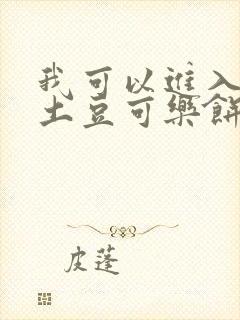 我可以進入
土豆可樂餅
皮蓬